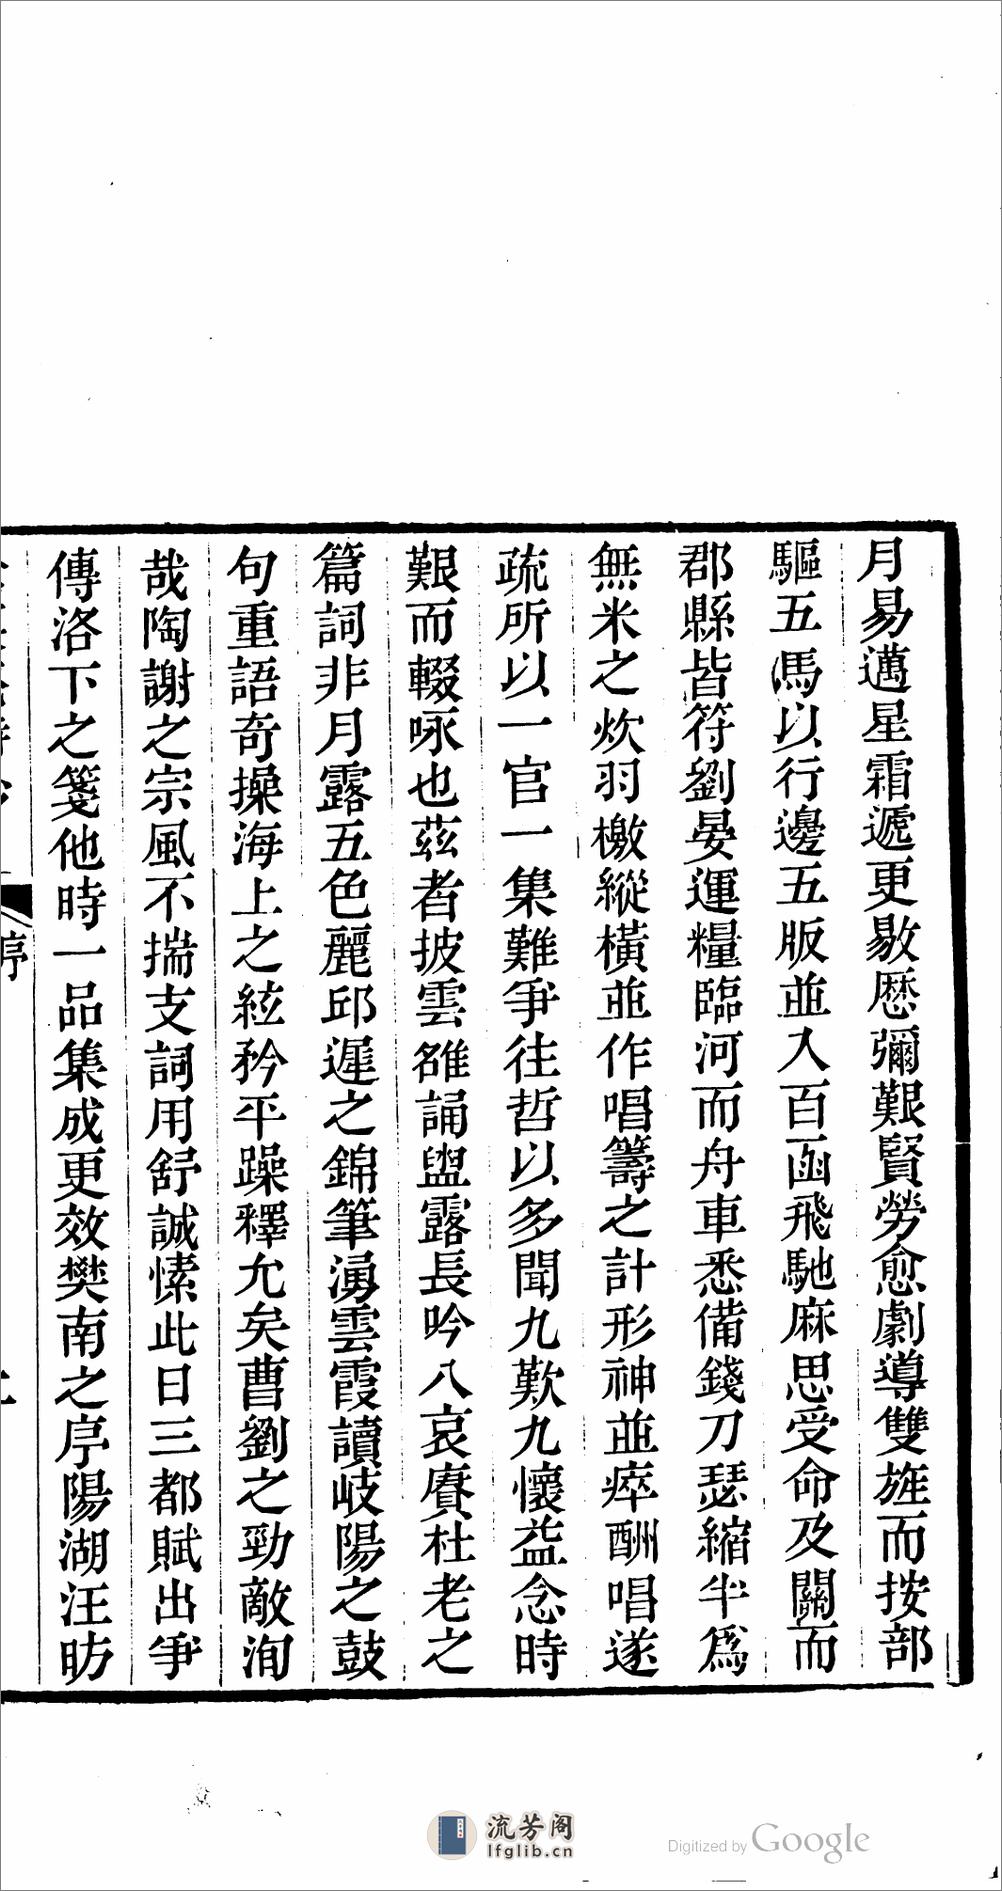 月易邁星霜遞更敭歴彌艱賢勞愈劇導雙旌而按部
驅五馬以行邊五版並入百函飛馳麻思受命及關而
郡縣皆符劉晏運糧臨河而舟車悉備錢刀瑟縮半爲
無米之炊羽檄縱橫並作唱籌之計形神並瘁酬唱遂
疏所以一官一集難爭往哲以多聞九歎九懷益念時
艱而輟咏也茲者披雲雒誦盥露長吟八哀賡杜老之
篇詞非月露五色麗邱遲之錦筆湧雲霞讀岐陽之鼓
句重語奇操海上之絃矜平躁釋允矣曹劉之勁敵洵
哉陶謝之宗風不揣支詞用舒誠愫此日三都賦出爭
傳洛下之箋他時一品集成更效樊南之序陽湖汪昉
序
流芳阁
lfglib.cn
Digitized by Google